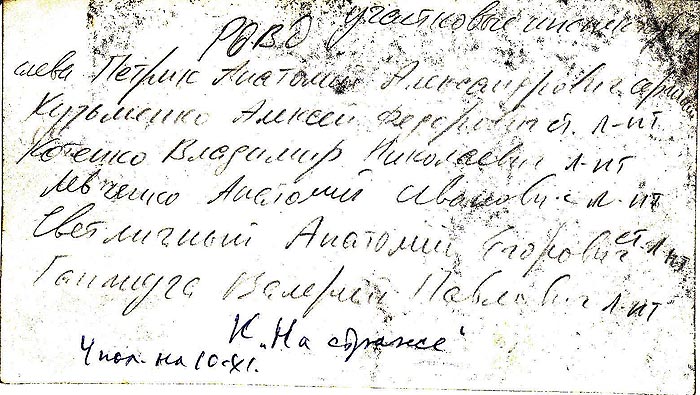 РОВД участковые инспектора
слева Петрик Анатолий Александрович
Кузьменко Алексей Федорович ст. л-нт
Котенко Владимир Николаевич л-нт
Левченко Анатолий Иванович л-нт
Светличный Анатолий Егорович ст. л-нт
Валерий Павлович л-нт
К „На страже“
на 10-XI.